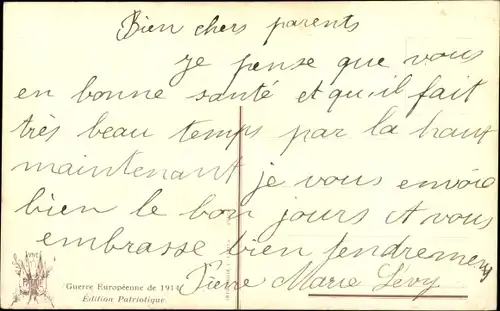 Bien chers parents
je pense que vous
en bonne santé et qu'il fait
très beau temps par la haut
maintenant je vous envoie
bien le bon jours et vous
embrasse bien tendrement
Pierre Marie Lévy
Guerre Européenne de 1914
Édition Patriotique.